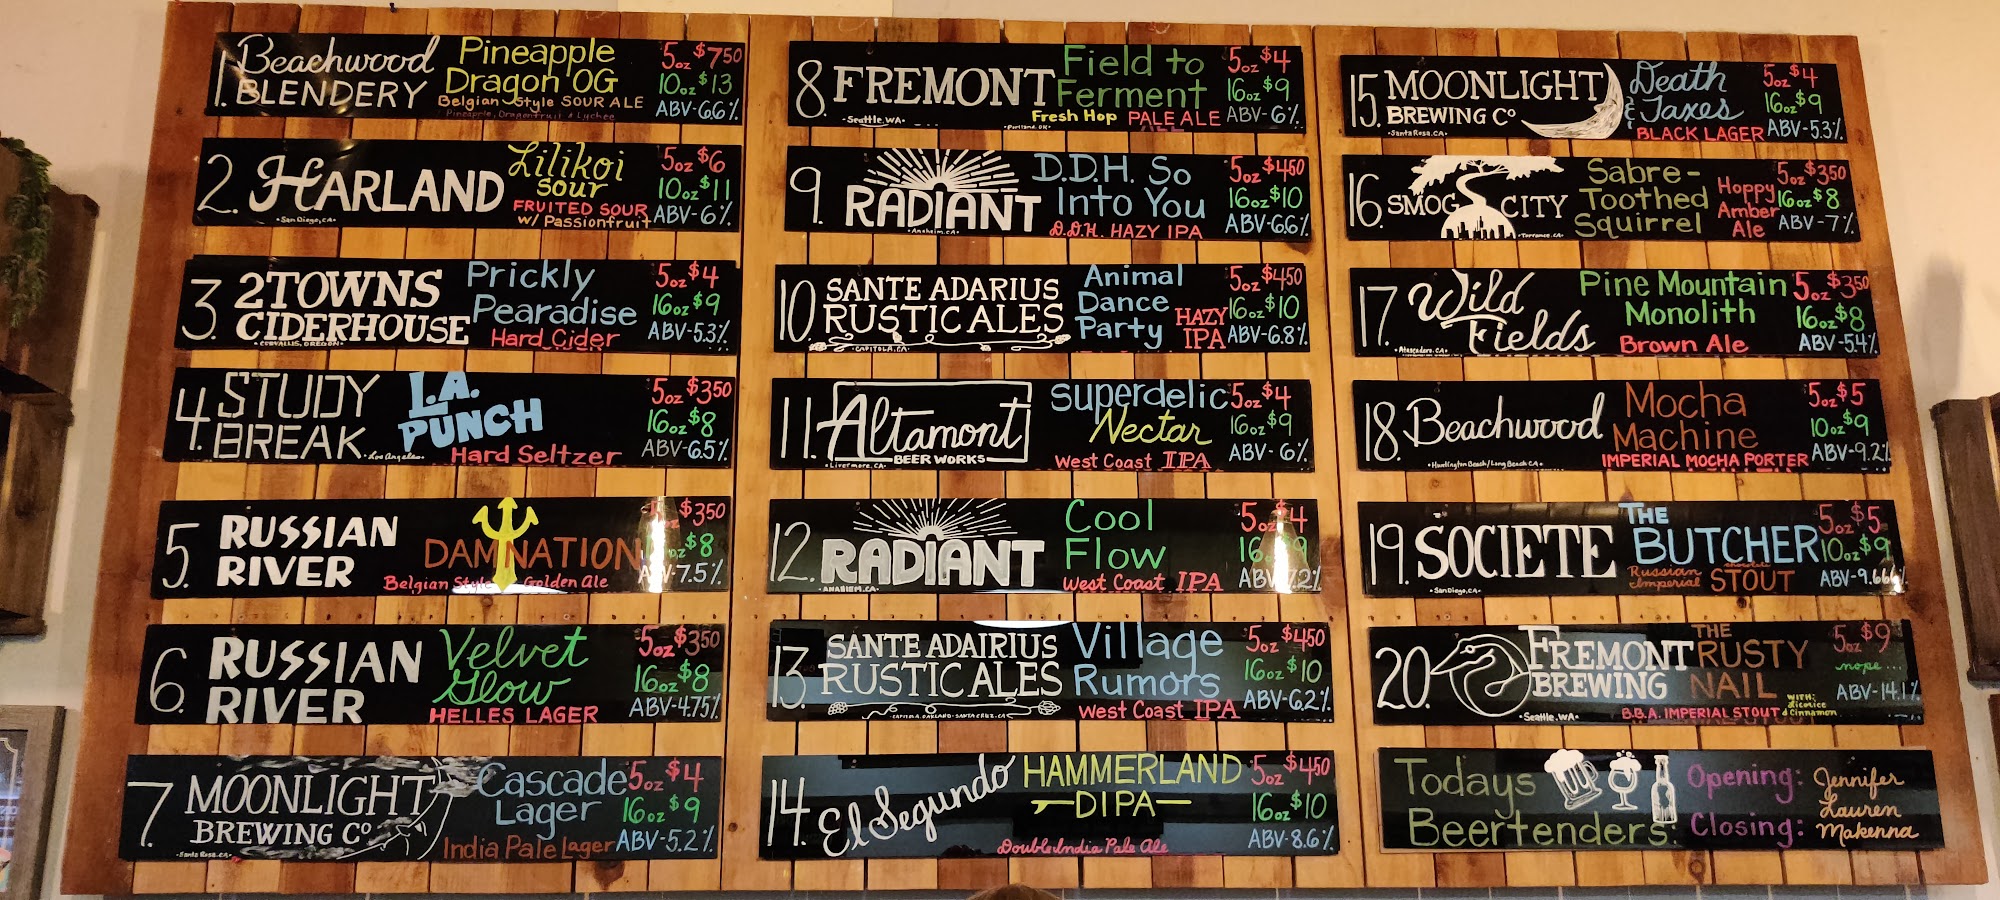 1. Beachwood BLENDERY
Pineapple Dragon OG
Belgian Style SOUR ALE
Pineapple, Dragonfruit & Lychee
5oz $7.50
10oz $13
ABV-6.6%
2. HARLAND
San Diego, CA
Lilikoi Sour
FRUITED SOUR
w/ Passionfruit
5oz $6
10oz $11
ABV-6%
3. 2TOWNS CIDERHOUSE
CORVALLIS, OREGON
Prickly Pearadise
Hard Cider
5oz $4
16oz $9
ABV-5.3%
4. STUDY BREAK
Los Angeles
L.A. PUNCH
Hard Seltzer
5oz $350
16oz $8
ABV-6.5%
5. RUSSIAN RIVER
DAMNATION
Belgian Style Golden Ale
5oz $350
16oz $8
ABV-7.5%
6. RUSSIAN RIVER
Velvet Glow
HELLES LAGER
5oz $350
16oz $8
ABV-4.75%
7. MOONLIGHT BREWING Co
Santa Rosa, CA
Cascade Lager
India Pale Lager
5oz $4
16oz $9
ABV-5.2%
8. FREMONT
Seattle, WA
Field to Ferment
Fresh Hop PALE ALE
5oz $4
16oz $9
ABV-6%
9. RADIANT
Anaheim, CA
D.D.H. So Into You
D.D.H. HAZY IPA
5oz $450
16oz $10
ABV-6.6%
10. SANTE ADARIUS RUSTIC ALES
CAPITOLA, CA
Animal Dance Party
HAZY IPA
5oz $450
16oz $10
ABV-6.8%
11. Altamont BEER WORKS
Livermore, CA
Superdelic Nectar
West Coast IPA
5oz $4
16oz $9
ABV-6%
12. RADIANT
ANAHEIM, CA
Cool Flow
West Coast IPA
5oz $4
16oz $9
ABV-7.2%
13. SANTE ADAIRIUS RUSTIC ALES
CAPITOLA, OAKLAND, SANTA CRUZ, CA
Village Rumors
West Coast IPA
5oz $450
16oz $10
ABV-6.2%
14. El Segundo
HAMMERLAND
DIPA
Double India Pale Ale
5oz $450
16oz $10
ABV-8.6%
15. MOONLIGHT BREWING Co
Santa Rosa, CA
Death & Taxes
BLACK LAGER
5oz $4
16oz $9
ABV-5.3%
16. SMOG CITY
Torrance, CA
Sabre-Toothed Squirrel
Hoppy Amber Ale
5oz $350
16oz $8
ABV-7%
17. Wild Fields
Atascadero, CA
Pine Mountain Monolith
Brown Ale
5oz $350
16oz $8
ABV-5.4%
18. Beachwood
Huntington Beach/Long Beach CA
Mocha Machine
IMPERIAL MOCHA PORTER
5oz $5
10oz $9
ABV-9.2%
19. SOCIETE
San Diego, CA
THE BUTCHER
Russian Imperial chocolate STOUT
5oz $5
10oz $9
ABV-9.666%
20. FREMONT BREWING
Seattle, WA
THE RUSTY NAIL
B.B.A. IMPERIAL STOUT
WITH: licorice & Cinnamon
5oz $9
nope...
ABV-14.1%
Todays Beertenders:
Opening: Jennifer
Lauren
Closing: Makenna